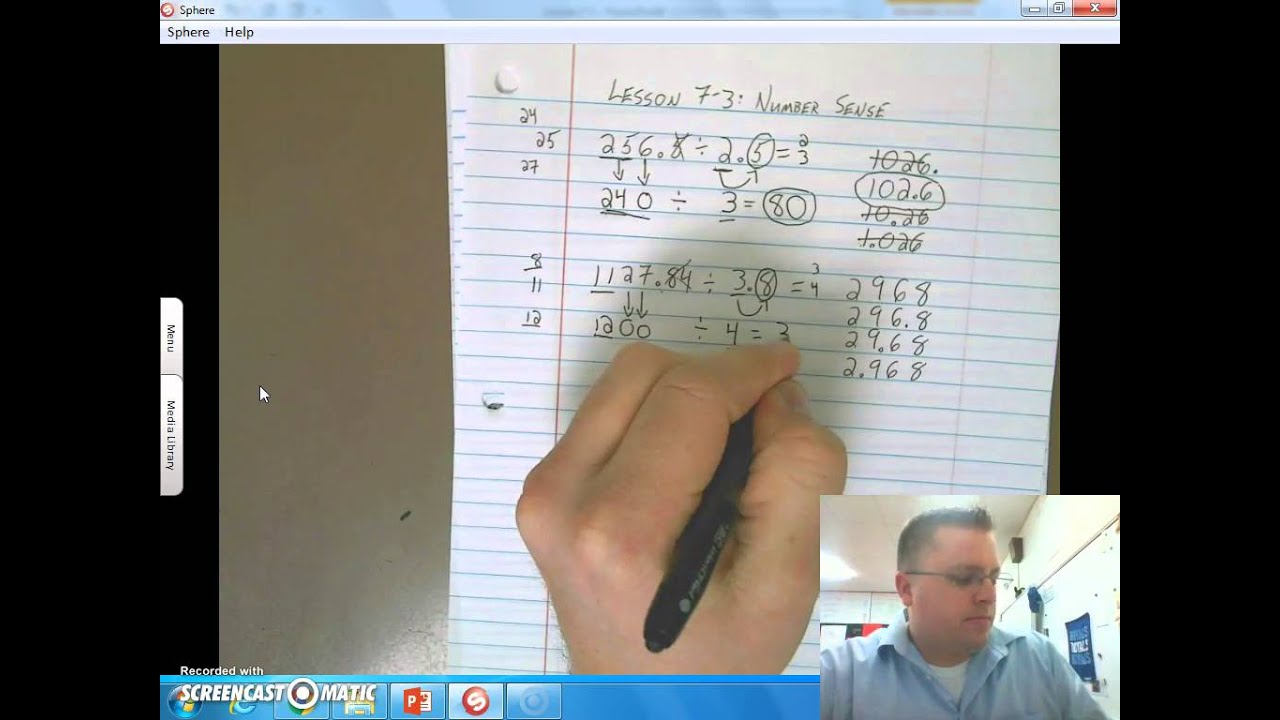 Sphere
Sphere Help
LESSON 7-3: NUMBER SENSE
24
25
27
256.5 ÷ 2.5 = 2 3
240 ÷ 3 = 80
1026.
102.6
10.26
1.026
8
11
12
1127.84 ÷ 3.8 = 3 4
1200 ÷ 4 = 3
2968
296.8
29.68
2.968
Menu
Media Library
Recorded with
SCREENCAST MATIC